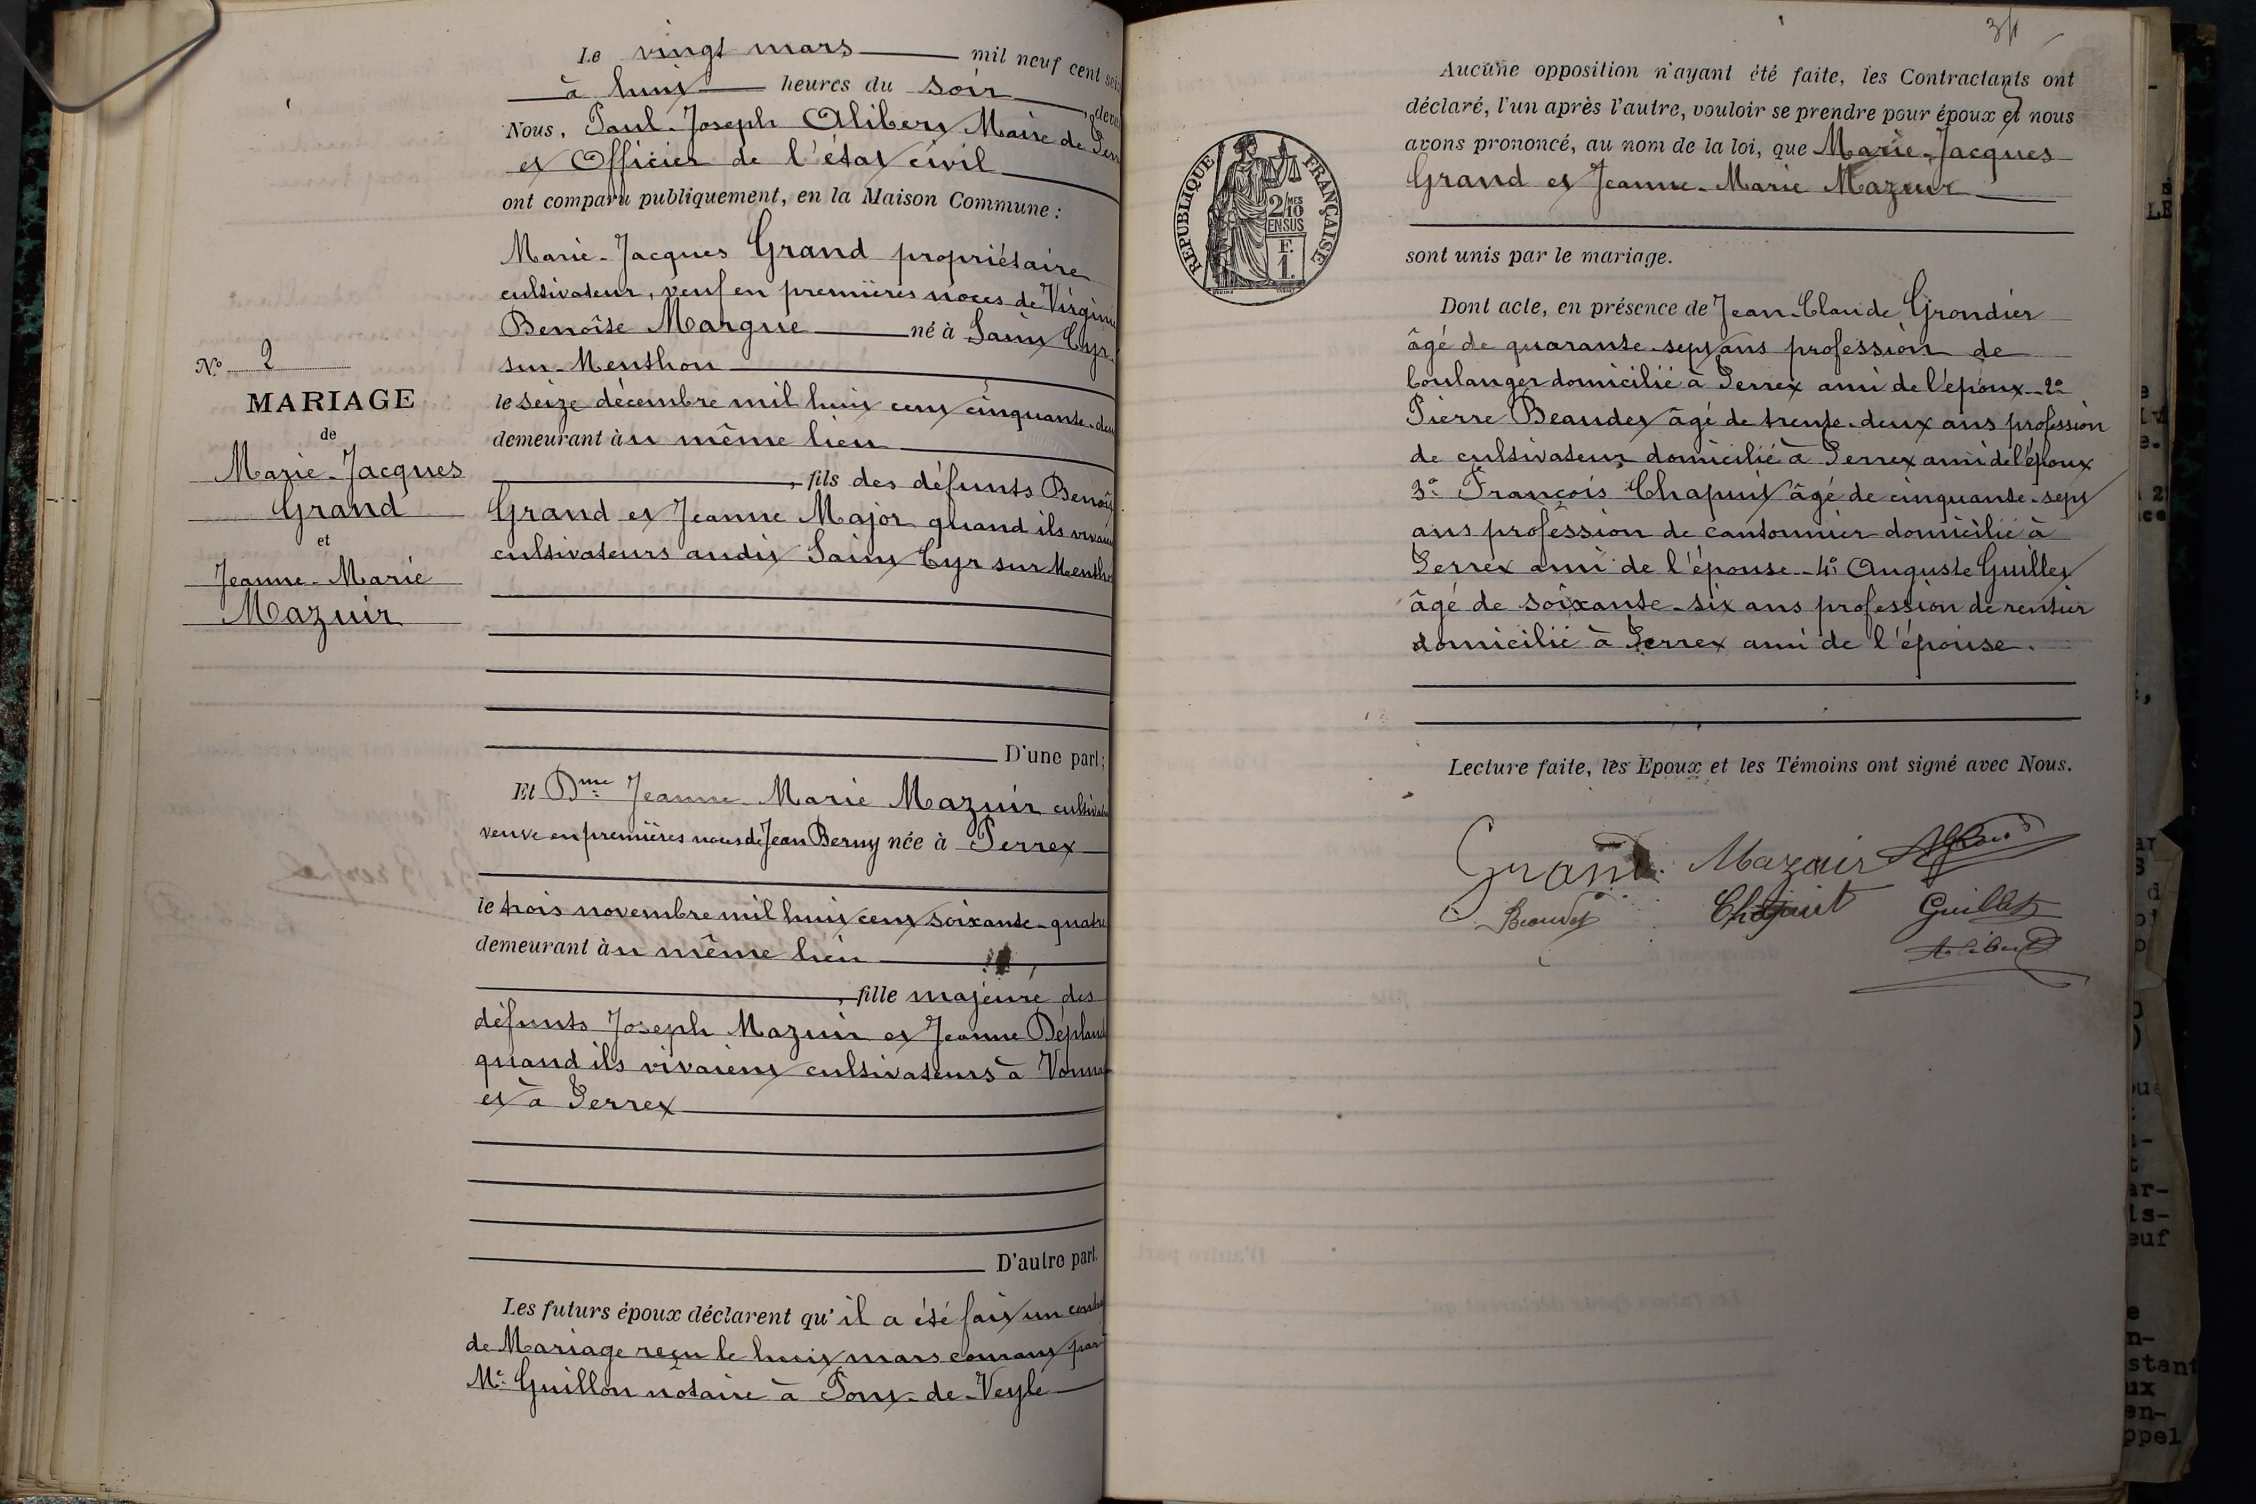 Le vingt mars mil neuf cent
à huit heures du soir
Nous, Paul-Joseph Alibert Maire de
et Officier de l'état civil
ont comparu publiquement, en la Maison Commune :
Marie-Jacques Grand propriétaire
cultivateur, veuf en premières noces de Virginie
Benoîte Margue né à Saint Cyr-
sur-Menthon
le seize décembre mil huit cent cinquante-
demeurant au même lieu
, fils des défunts Benoît
Grand et Jeanne Major quand ils
cultivateurs audit Saint Cyr sur
D'une part ;
No 2
MARIAGE
de
Marie-Jacques
Grand
et
Jeanne-Marie
Mazuir
Et Dme Jeanne-Marie Mazuir
veuve en premières noces de Jean Berny née à Perrex
le trois novembre mil huit cent soixante-quatre
demeurant au même lieu
, fille majeure des
défunts Joseph Mazuir et Jeanne
quand ils vivaient cultivateurs à
et à Perrex
D'autre part.
Les futurs époux déclarent qu'il a été fait un
de Mariage reçu le huit mars courant par
Me Guillon notaire à Pont-de-Veyle
Aucune opposition n'ayant été faite, les Contractants ont
déclaré, l'un après l'autre, vouloir se prendre pour époux et nous
avons prononcé, au nom de la loi, que Marie-Jacques
Grand et Jeanne-Marie Mazuir
REPUBLIQUE FRANÇAISE
2/10 MES
EN SUS
F.
1.
sont unis par le mariage.
Dont acte, en présence de Jean-Claude Grondier
âgé de quarante-sept ans profession de
boulanger domicilié à Perrex ami de l'époux - 2o
Pierre Beaudet âgé de trente-deux ans profession
de cultivateur domicilié à Perrex ami de l'époux
3o François Chapuit âgé de cinquante-sept
ans profession de cantonnier domicilié à
Perrex ami de l'épouse - 4o Auguste Guillet
âgé de soixante-six ans profession de rentier
domicilié à Perrex ami de l'épouse.
Lecture faite, les Epoux et les Témoins ont signé avec Nous.
Grand Mazuir
Beaudet Chapuit Guillet
Alibert